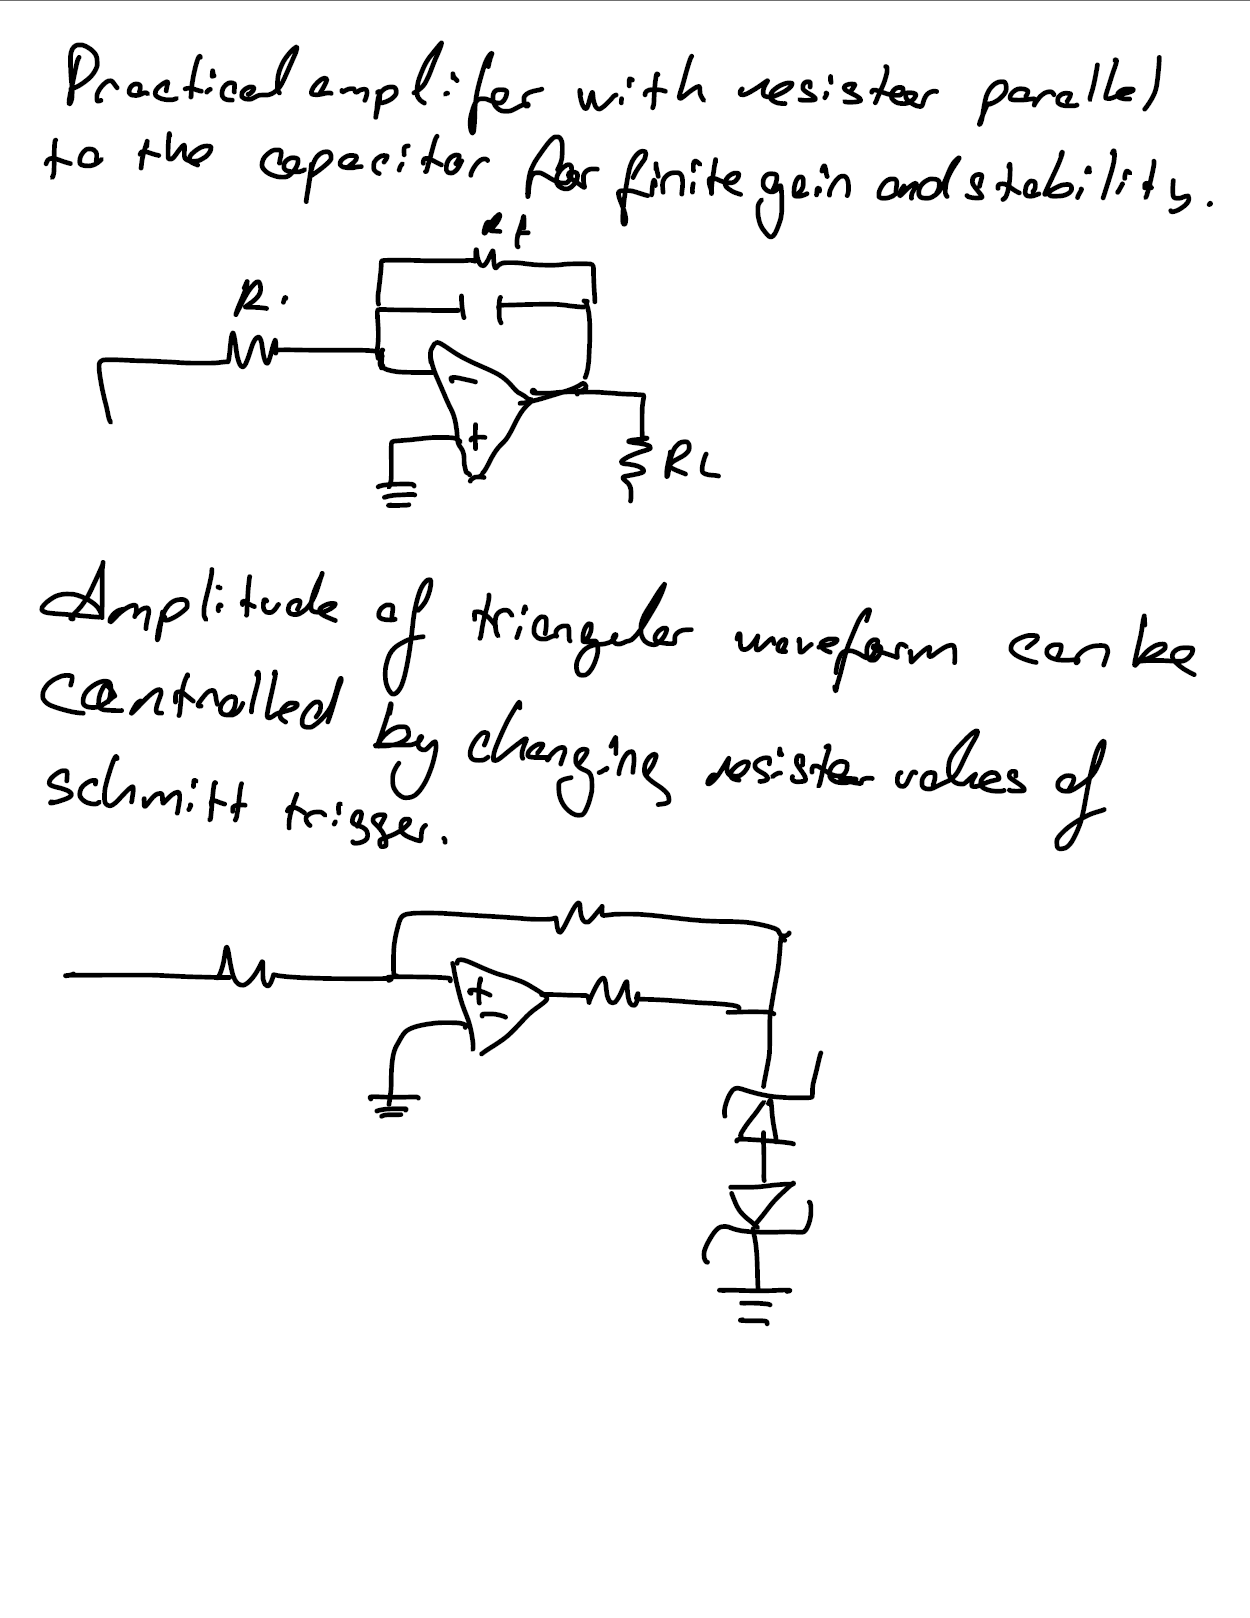 Practical amplifer with resister parallel
to the capacitor for finite gain and stability.
Rf
R.
-
+
RL
Amplitude of trianguler waveform can be
controlled by changing resister values of
schmitt trigger.
+
-